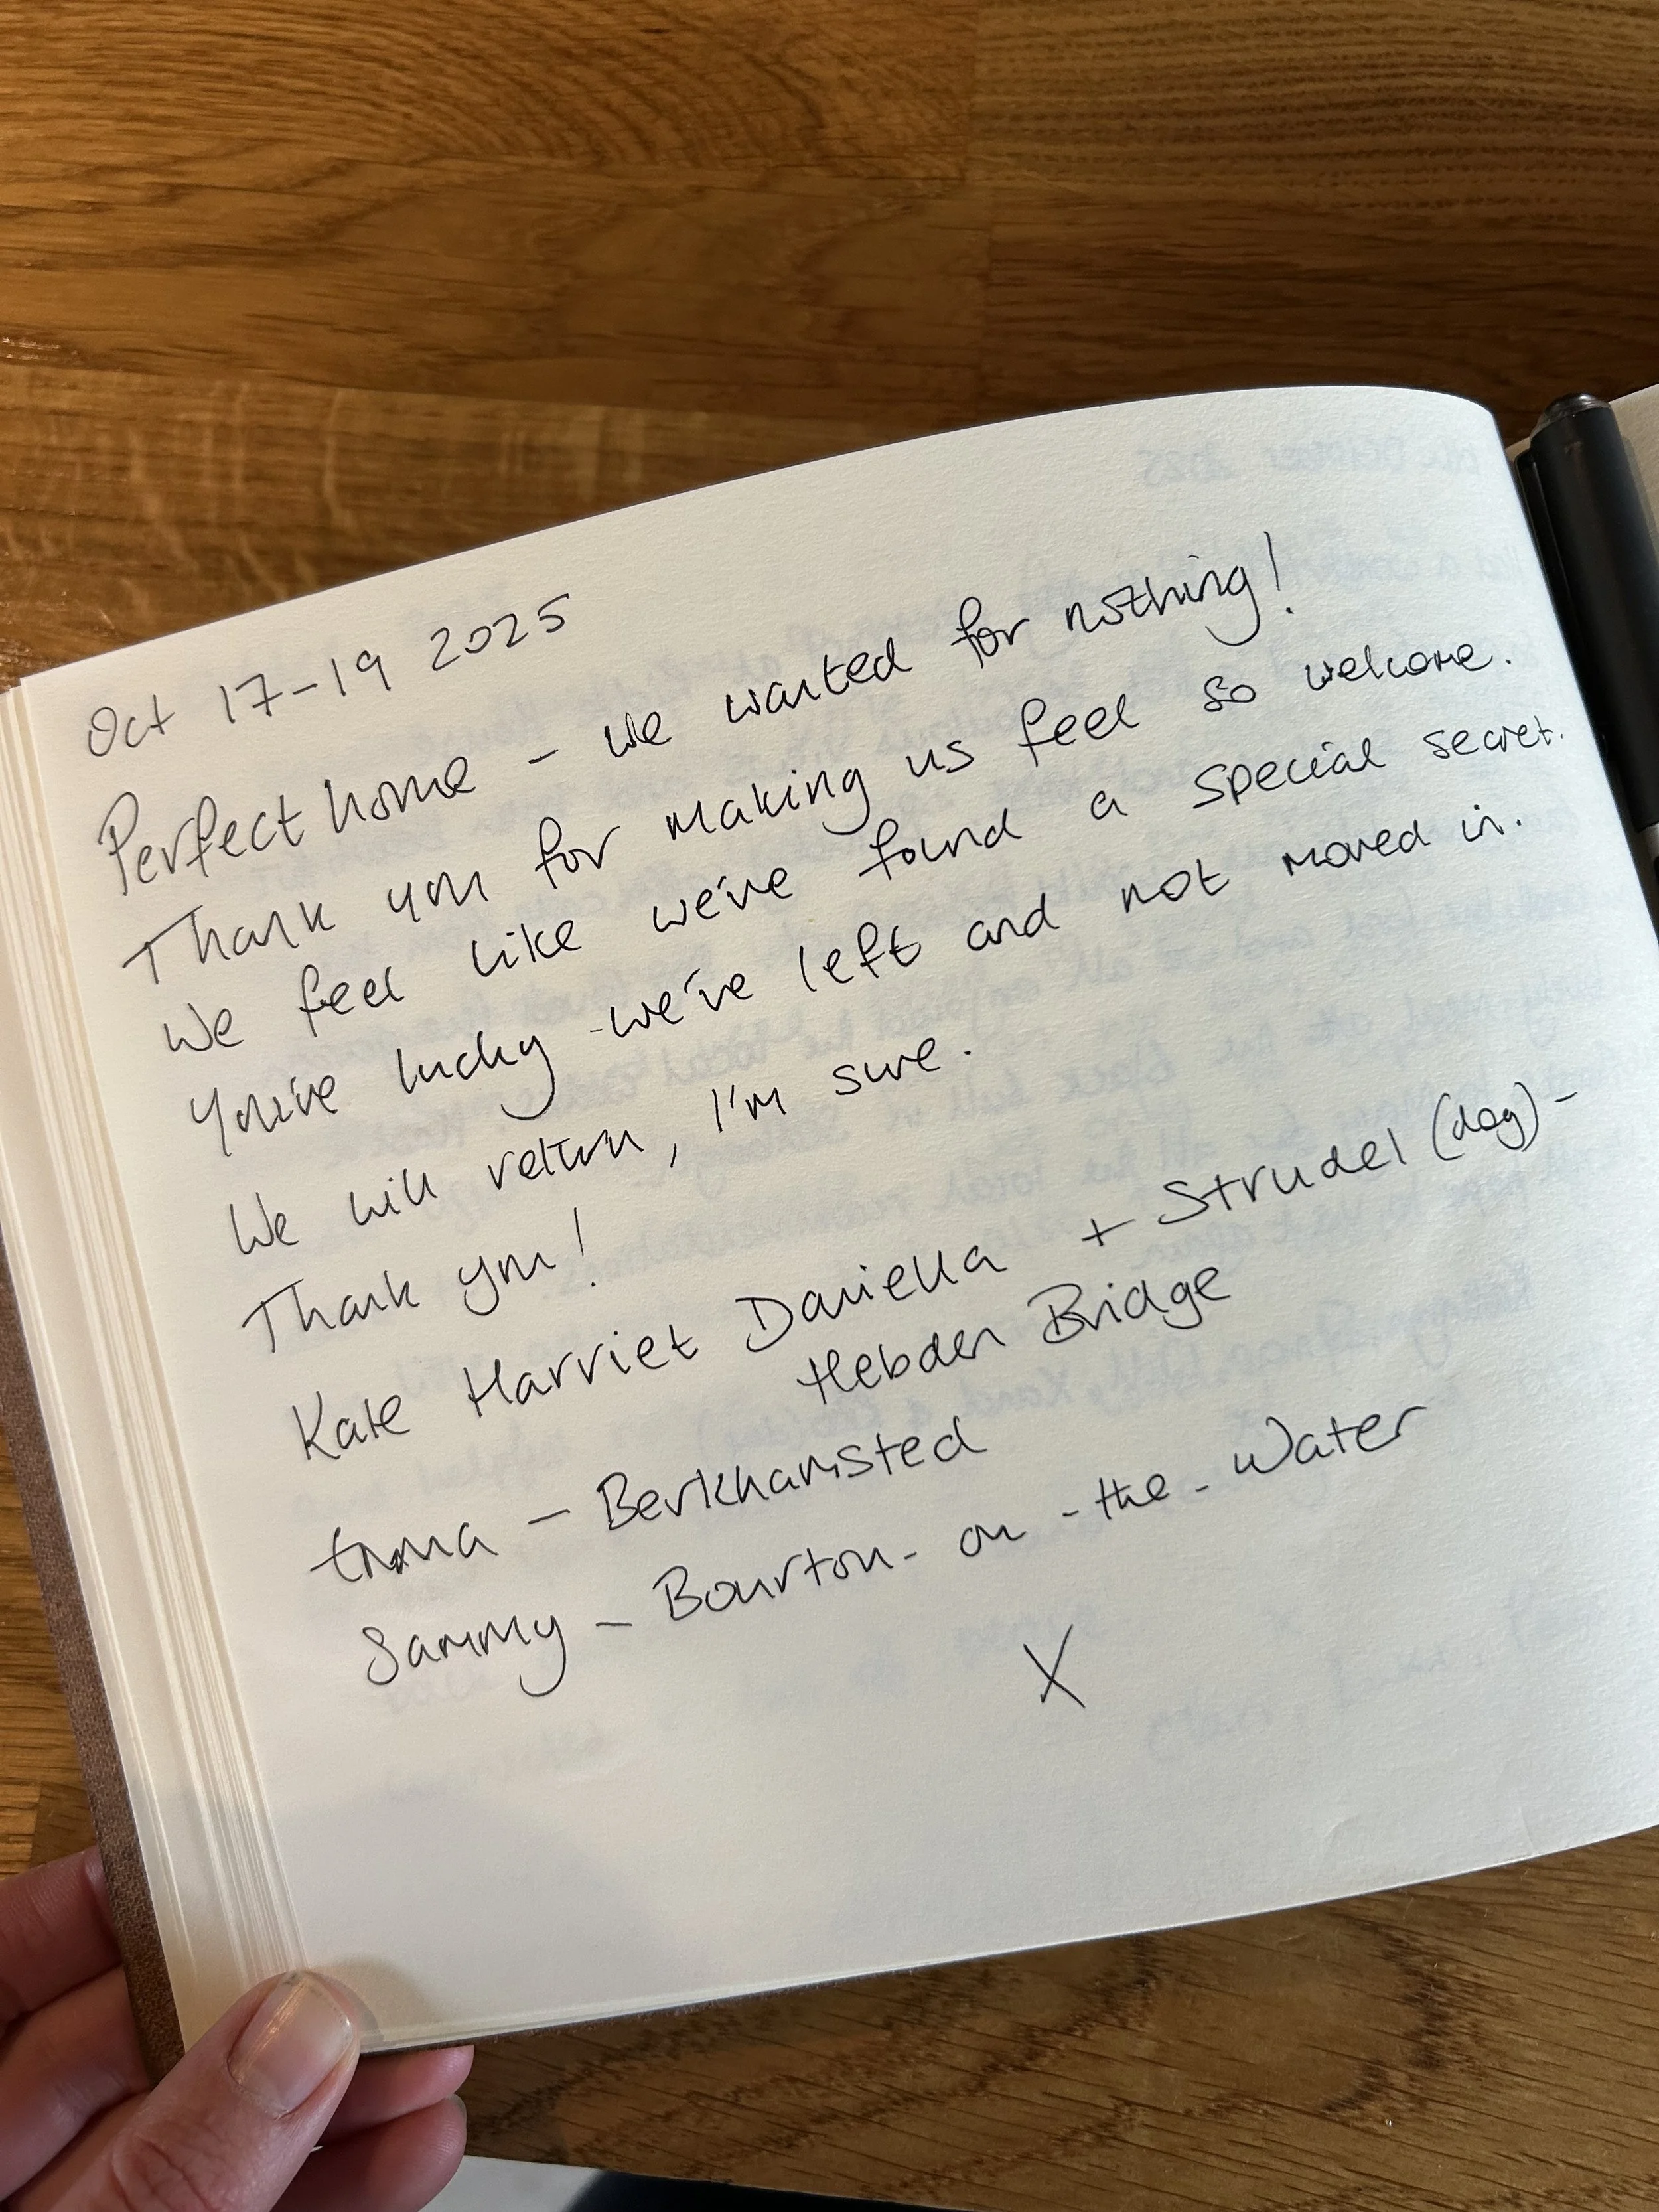 Oct 17-19 2025
Perfect home - we wanted for nothing!
Thank you for making us feel so welcome.
We feel like we've found a special secret.
You're lucky - we've left and not moved in.
We will return, I'm sure.
Thank you!
Kate Harriet Daniella + Strudel (dog) -
Hebden Bridge
Emma - Berkhamsted
Sammy - Bourton-on-the-Water
X